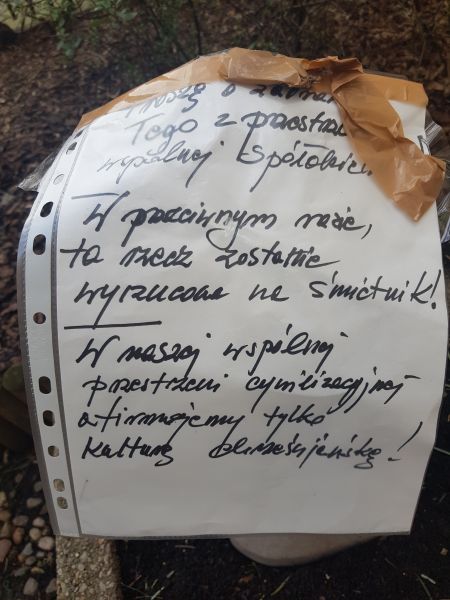 Proszę o zabranie
Tego z przestrzeni
wspólnej Spółdzielni
W przeciwnym razie,
ta rzecz zostanie
wyrzucona na śmietnik!
W naszej wspólnej
przestrzeni cywilizacyjnej
afirmujemy tylko
Kulturę chrześcijańską!